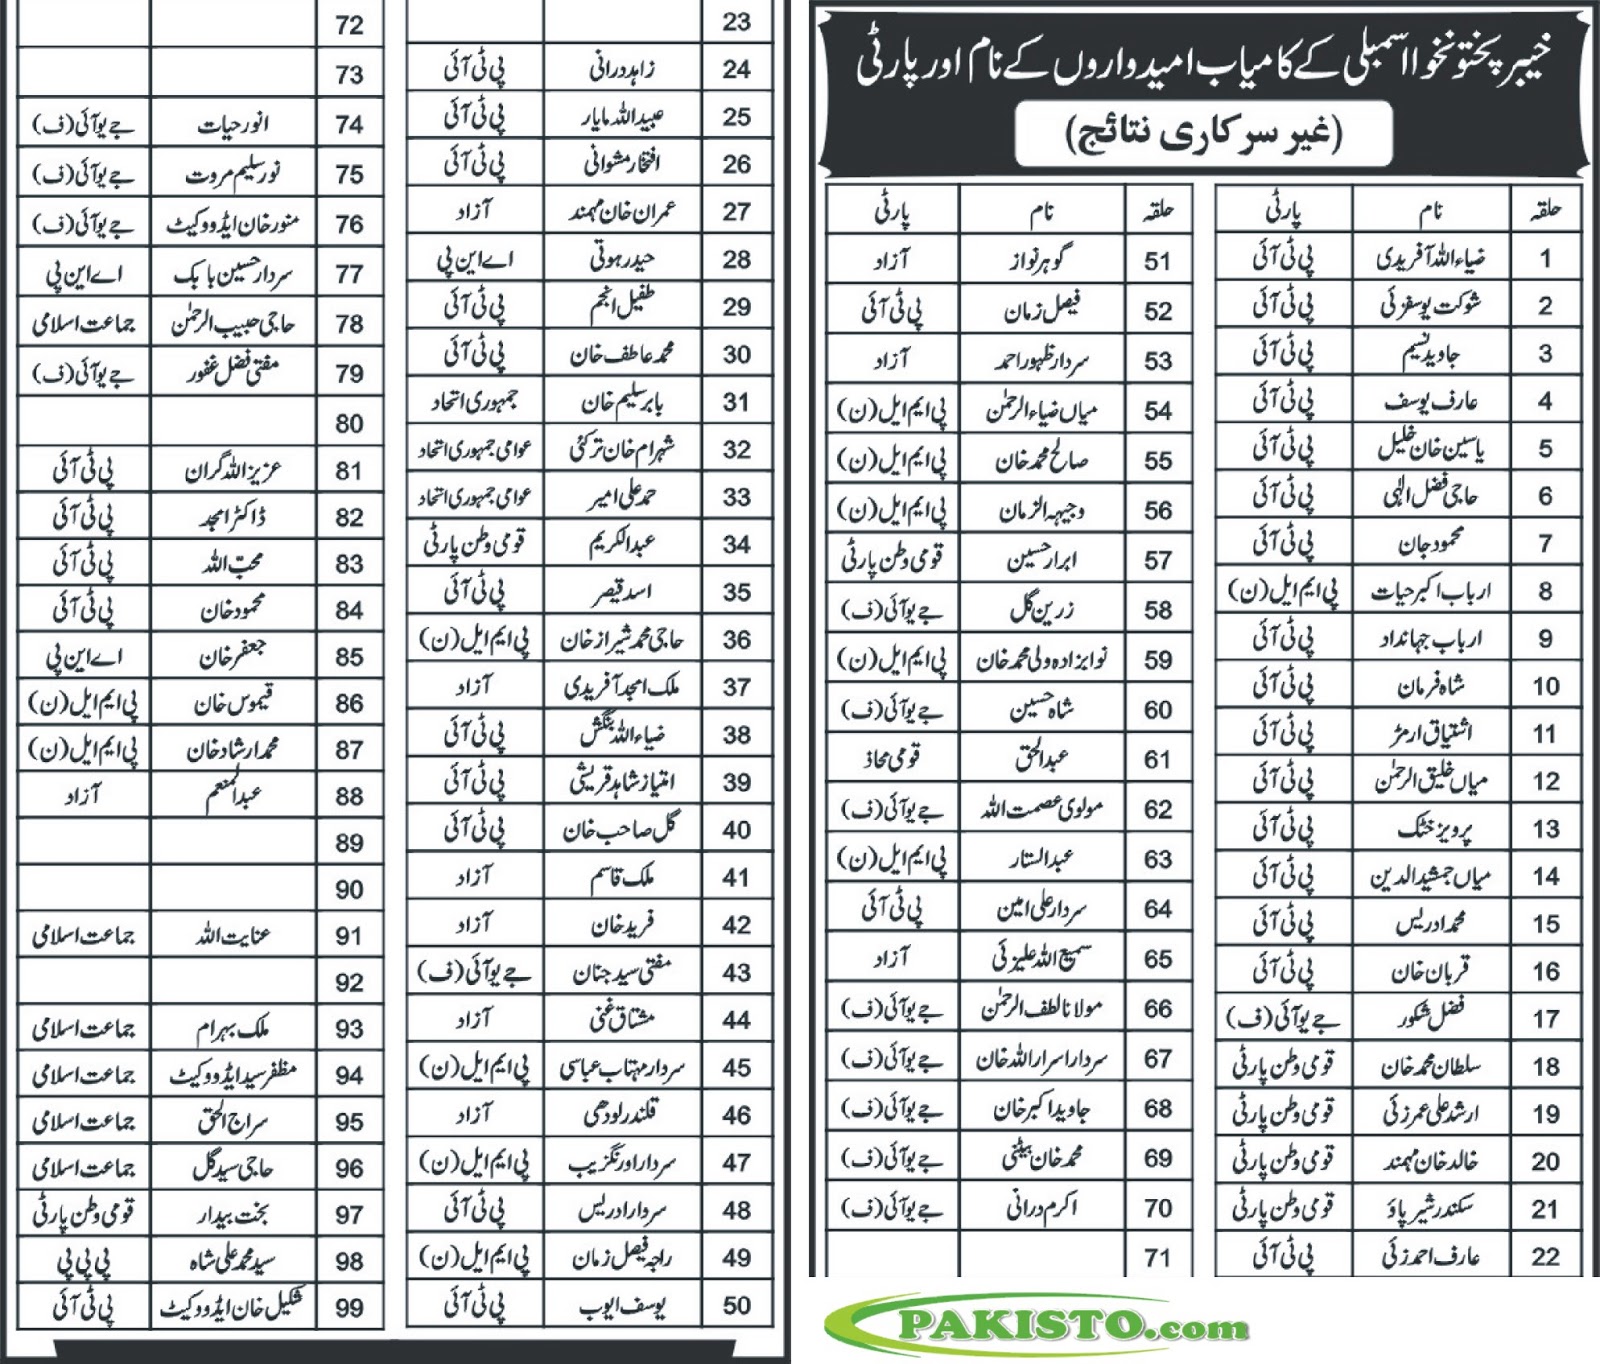 خیبر پختونخوا اسمبلی کے کامیاب امیدواروں کے نام اور پارٹی
(غیر سرکاری نتائج)
حلقہ نام پارٹی
1 ضیاء اللہ آفریدی پی ٹی آئی
2 شوکت یوسفزئی پی ٹی آئی
3 جاوید نسیم پی ٹی آئی
4 عارف یوسف پی ٹی آئی
5 یاسین خان خلیل پی ٹی آئی
6 حاجی فضل الٰہی پی ٹی آئی
7 محمود جان پی ٹی آئی
8 ارباب اکبر حیات پی ایم ایل (ن)
9 ارباب جہانداد پی ٹی آئی
10 شاہ فرمان پی ٹی آئی
11 اشتیاق ارمڑ پی ٹی آئی
12 میاں خلیق الرحمٰن پی ٹی آئی
13 پرویز خٹک پی ٹی آئی
14 میاں جمشید الدین پی ٹی آئی
15 محمد ادریس پی ٹی آئی
16 قربان خان پی ٹی آئی
17 فضل شکور جے یو آئی (ف)
18 سلطان محمد خان قومی وطن پارٹی
19 ارشد علی عمرزئی قومی وطن پارٹی
20 خالد خان مہمند قومی وطن پارٹی
21 سکندر شیر پاؤ قومی وطن پارٹی
22 عارف احمد زئی پی ٹی آئی
حلقہ نام پارٹی
51 گوہر نواز آزاد
52 فیصل زمان پی ٹی آئی
53 سردار ظہور احمد آزاد
54 میاں ضیاء الرحمٰن پی ایم ایل (ن)
55 صالح محمد خان پی ایم ایل (ن)
56 وجیہہ الزمان پی ایم ایل (ن)
57 ابرار حسین قومی وطن پارٹی
58 زرین گل جے یو آئی (ف)
59 نوابزادہ ولی محمد خان پی ایم ایل (ن)
60 شاہ حسین جے یو آئی (ف)
61 عبدالحق قومی محاذ
62 مولوی عصمت اللہ جے یو آئی (ف)
63 عبدالستار پی ایم ایل (ن)
64 سردار علی امین پی ٹی آئی
65 سمیع اللہ علیزئی آزاد
66 مولانا لطف الرحمٰن جے یو آئی (ف)
67 سردار اسرار اللہ خان جے یو آئی (ف)
68 جاوید اکبر خان جے یو آئی (ف)
69 محمد خان بیٹنی جے یو آئی (ف)
70 اکرم درانی جے یو آئی (ف)
71
23
24 زاہد درانی پی ٹی آئی
25 عبید اللہ مایار پی ٹی آئی
26 افتخار مشوانی پی ٹی آئی
27 عمران خان مہمند آزاد
28 حیدر ہوتی اے این پی
29 طفیل انجم پی ٹی آئی
30 محمد عاطف خان پی ٹی آئی
31 بابر سلیم خان جمہوری اتحاد
32 شہرام خان ترکئی عوامی جمہوری اتحاد
33 حمد علی امیر عوامی جمہوری اتحاد
34 عبدالکریم قومی وطن پارٹی
35 اسد قیصر پی ٹی آئی
36 حاجی محمد شیراز خان پی ایم ایل (ن)
37 ملک امجد آفریدی آزاد
38 ضیاء اللہ بنگش پی ٹی آئی
39 امتیاز شاہد قریشی پی ٹی آئی
40 گل صاحب خان پی ٹی آئی
41 ملک قاسم آزاد
42 فرید خان آزاد
43 مفتی سید جنان جے یو آئی (ف)
44 مشتاق غنی آزاد
45 سردار مہتاب عباسی پی ایم ایل (ن)
46 قلندر لودھی آزاد
47 سردار اورنگزیب پی ایم ایل (ن)
48 سردار ادریس پی ٹی آئی
49 راجہ فیصل زمان پی ایم ایل (ن)
50 یوسف ایوب پی ٹی آئی
72
73
74 انور حیات جے یو آئی (ف)
75 نور سلیم مروت جے یو آئی (ف)
76 منور خان ایڈووکیٹ جے یو آئی (ف)
77 سردار حسین بابک اے این پی
78 حاجی حبیب الرحمٰن جماعت اسلامی
79 مفتی فضل غفور جے یو آئی (ف)
80
81 عزیز اللہ گران پی ٹی آئی
82 ڈاکٹر امجد پی ٹی آئی
83 محبّ اللہ پی ٹی آئی
84 محمود خان پی ٹی آئی
85 جعفر خان اے این پی
86 قیموس خان پی ایم ایل (ن)
87 محمد ارشاد خان پی ایم ایل (ن)
88 عبدالمنعم آزاد
89
90
91 عنایت اللہ جماعت اسلامی
92
93 ملک بہرام جماعت اسلامی
94 مظفر سید ایڈووکیٹ جماعت اسلامی
95 سراج الحق جماعت اسلامی
96 حاجی سید گل جماعت اسلامی
97 بخت بیدار قومی وطن پارٹی
98 سید محمد علی شاہ پی پی پی
99 شکیل خان ایڈووکیٹ پی ٹی آئی
PAKISTO.com